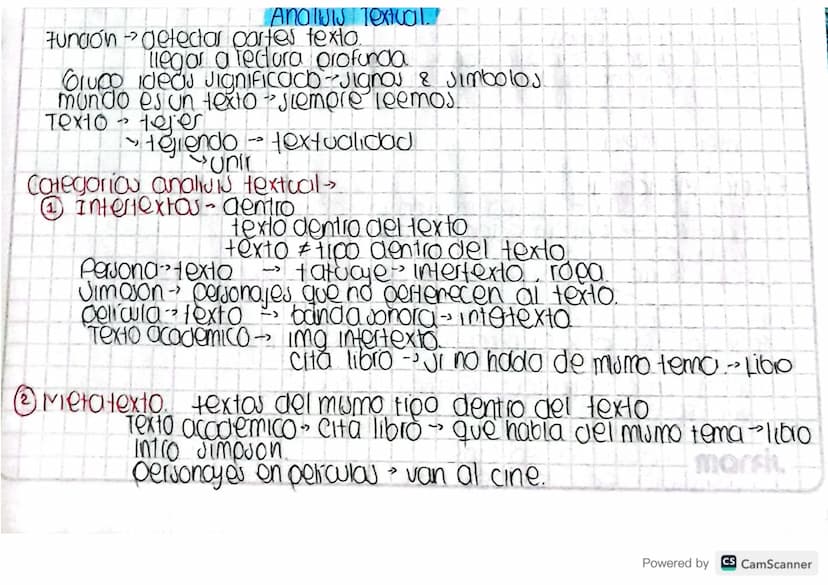 Analisis Textual.
Función → detectar partes texto.
llegar a lectura profunda.
Grupo ideas significado → signos & simbolos
mundo es un texto → siempre leemos
Texto → tejer
↘ tejiendo → textualidad
↘ unir
Categorias analisis textual →
① Intertextos - dentro
texto dentro del texto
texto ≠ tipo dentro del texto
Persona → texto → tatuaje → intertexto, ropa
Simpson → personajes que no pertenecen al texto.
pelicula → texto → banda sonora → intetexto
Texto academico → img intertexto.
cita libro → si no habla de mismo tema → Libro
② Metatexto. textos del mismo tipo dentro del texto
Texto academico → cita libro → que habla del mismo tema → libro
intro simpson
personajes en peliculas → van al cine.
marsil
Powered by CS CamScanner